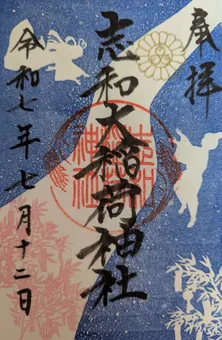 奉拝
志和大稲荷神社
令和七年七月十二日